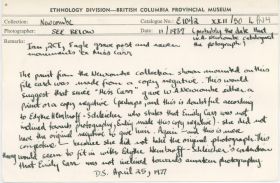 ETHNOLOGY DIVISION—BRITISH COLUMBIA PROVINCIAL MUSEUM
Collection: Newcombe Catalogue No.: E1042 XXII/90
Photographer: SEE BELOW Date: 11/1937 (probably the date that
Remarks: the photograph)
Single grave post and seven
monuments to Miss Carr
The print from the Newcombe collection shown mounted on this
file card was made from a copy negative. This would
suggest that since "Miss Carr" gave to Newcombe either a
print or a copy negative (perhaps), and this is doubtful according
to Edythe Hembroff-Schleicher, who states that Emily Carr was not
inclined towards photography, made this copy negative - she did not
have the original negative to give him. Again - and this is more
conjecture - because she did not take the original photograph. This
would seem to fit in with Edythe Hembroff-Schleicher's contention
that Emily Carr was not inclined towards amateur photography.
D.S. April 25, 1977